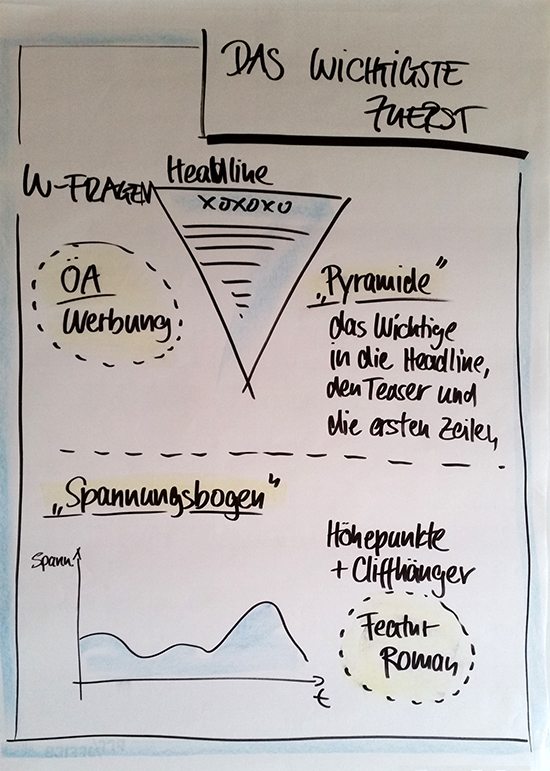 DAS WICHTIGSTE
ZUERST
Headline
W-FRAGEN
XOXOXO
ÖA
Werbung
„Pyramide"
das Wichtige
in die Headline,
den Teaser und
die ersten Zeilen
„Spannungsbogen"
Spann.
t
Höhepunkte
+ Cliffhänger
Featur
Roman